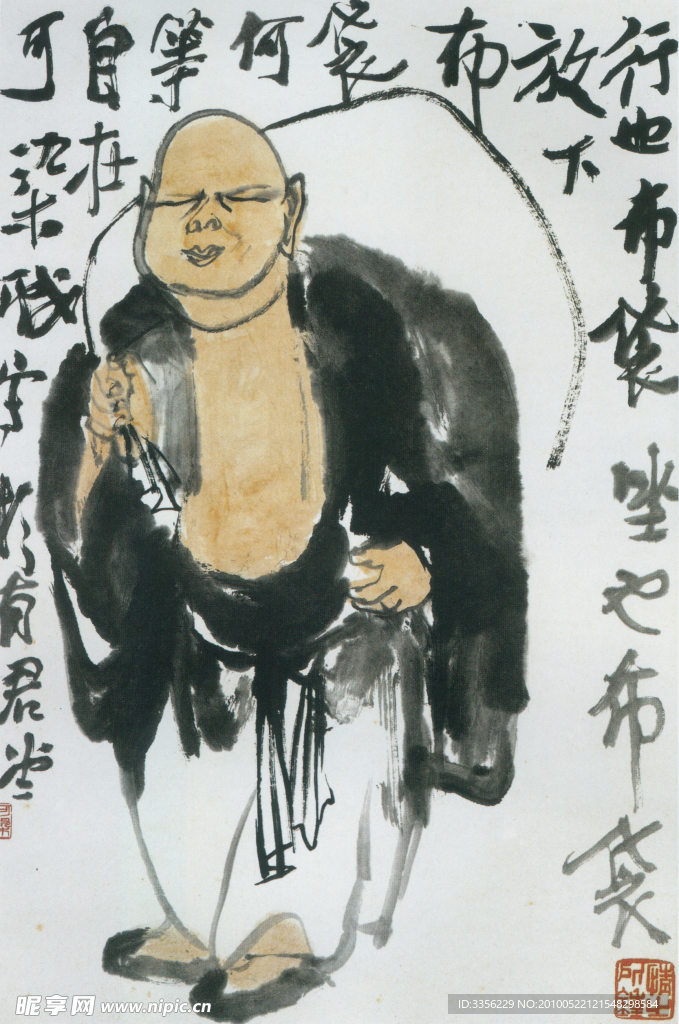 行也布袋坐也布袋
放下
布
袋
何
等
自在
可染戲寫於有君堂
昵享网 www.nipic.cn
ID:3356229 NO:20100522121548298584